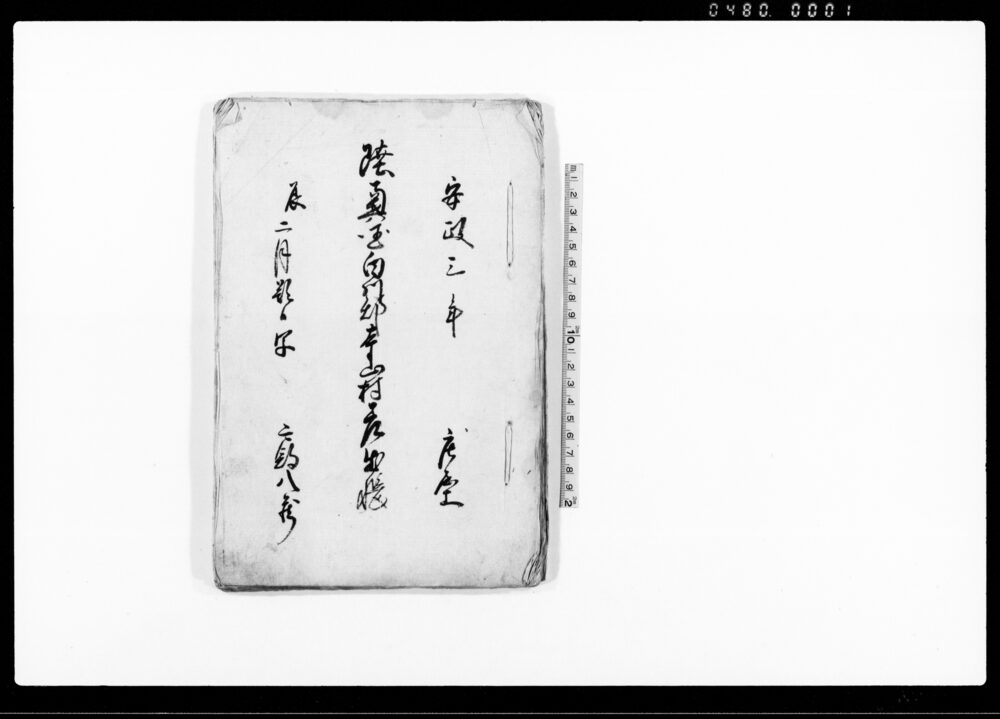 0480. 0001
安政三年 庄屋
陸奥国白川郡寺山村差出帳
辰二月
1 2 3 4 5 6 7 8 9 10 1 2 3 4 5 6 7 8 9 2